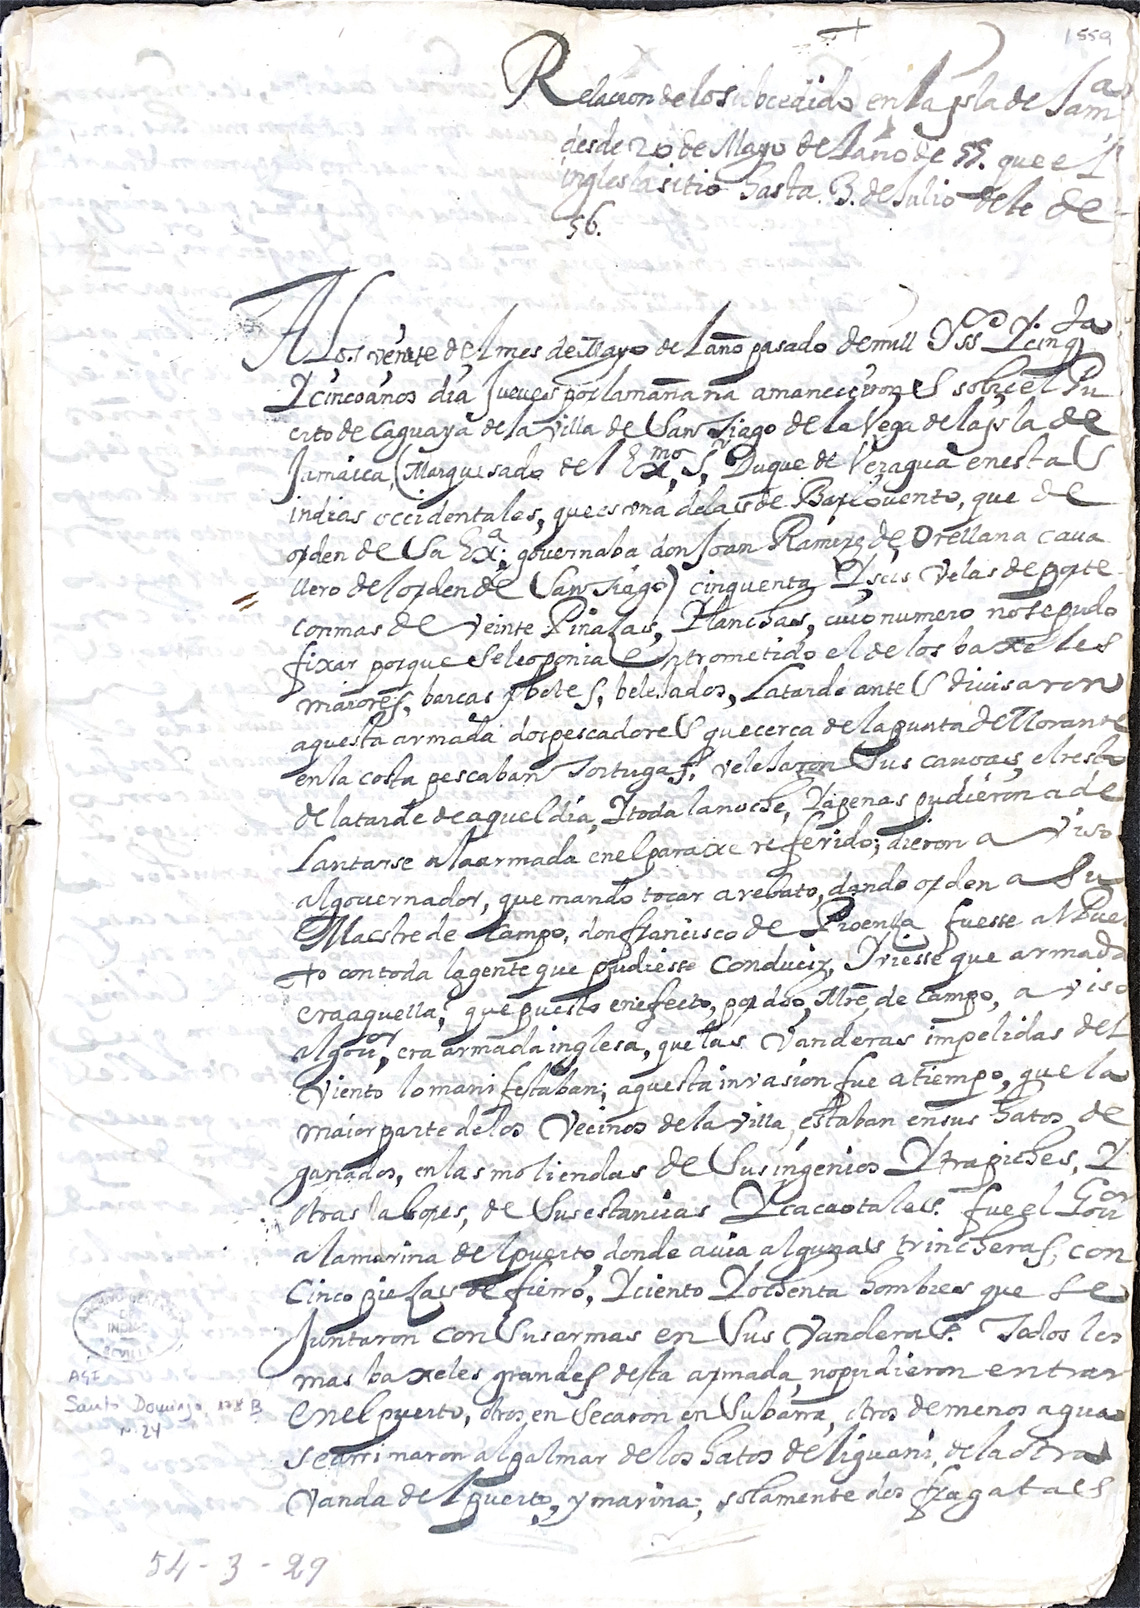 +
1559
Relacion de lo subcedido en la ysla de Jamca
desde 20 de Mayo del año de 55. que el
ingles la sitio hasta. 3. de Julio deste de
56.
A Los veinte del mes de Mayo del año pasado de mill Y ssos Y cinqta
Y cinco años dia Jueves por la mañana na amanecieron S sobre el Pu
erto de Caguaya de la villa de San Tiago de la Vega de la ysla de
Jamaica, (Marquesado del Exmo. Sr. Duque de Veragua en estas
indias occidentales, que es una de las de Barlovento, que de
orden de Su Exa. governaba don Joan Ramirez de Orellana cava
llero del orden de San Tiago) cinquenta Y seis velas de porte
con mas de veinte Pinazas, Planchas, cuio numero no se pudo
fixar porque se le oponia Entrometido el de los baxeles
maiores, barcas y botes, belejados, La tarde antes divisaron
aquesta armada dos pescadores que cerca de la punta de Morante
en la costa pescaban Tortugas. velejaron Sus canoas, el resto
de la tarde de aquel dia, Y toda la noche, Y apenas pudieron ade
Lantarse a la armada en el paraxe referido; dieron aviso
al governador, que mando tocar a rebato, dando orden a Su
Maestre de Campo, don francisco de Proenza fuesse al Puer
to con toda la gente que pudiesse conducir, Y viesse que armada
era aquella, que puesto en efecto, por dho, Mre, de campo, aviso
al govor, era armada inglesa, que las vanderas impelidas del
viento lo manifestaban; aquesta invasion fue a tiempo, que la
maior parte de los vecinos de la villa estaban en sus hatos de
ganados, en las moliendas de Sus ingenios Y trapiches, Y
otras labores, de Sus estancias Y cacaotales. fue el Govor
a la marina del puerto, donde avia algunas trincheras, con
Cinco piezas de fierro, Y ciento Y ochenta hombres que se
Juntaron con sus armas en Sus vanderas. Todos los
mas baxeles grandes desta armada, no pudieron entrar
en el puerto, otros en Secaron en Su barra, otros de menos agua
se arrimaron al palmar de los hatos de liguani, de la otra
vanda del puerto, y marina, solamente dos fragatas
ARCHIVO GENERAL
DE
INDIAS
SEVILLA
AGI
Santo Domingo, 178 B
n. 24
54-3-29